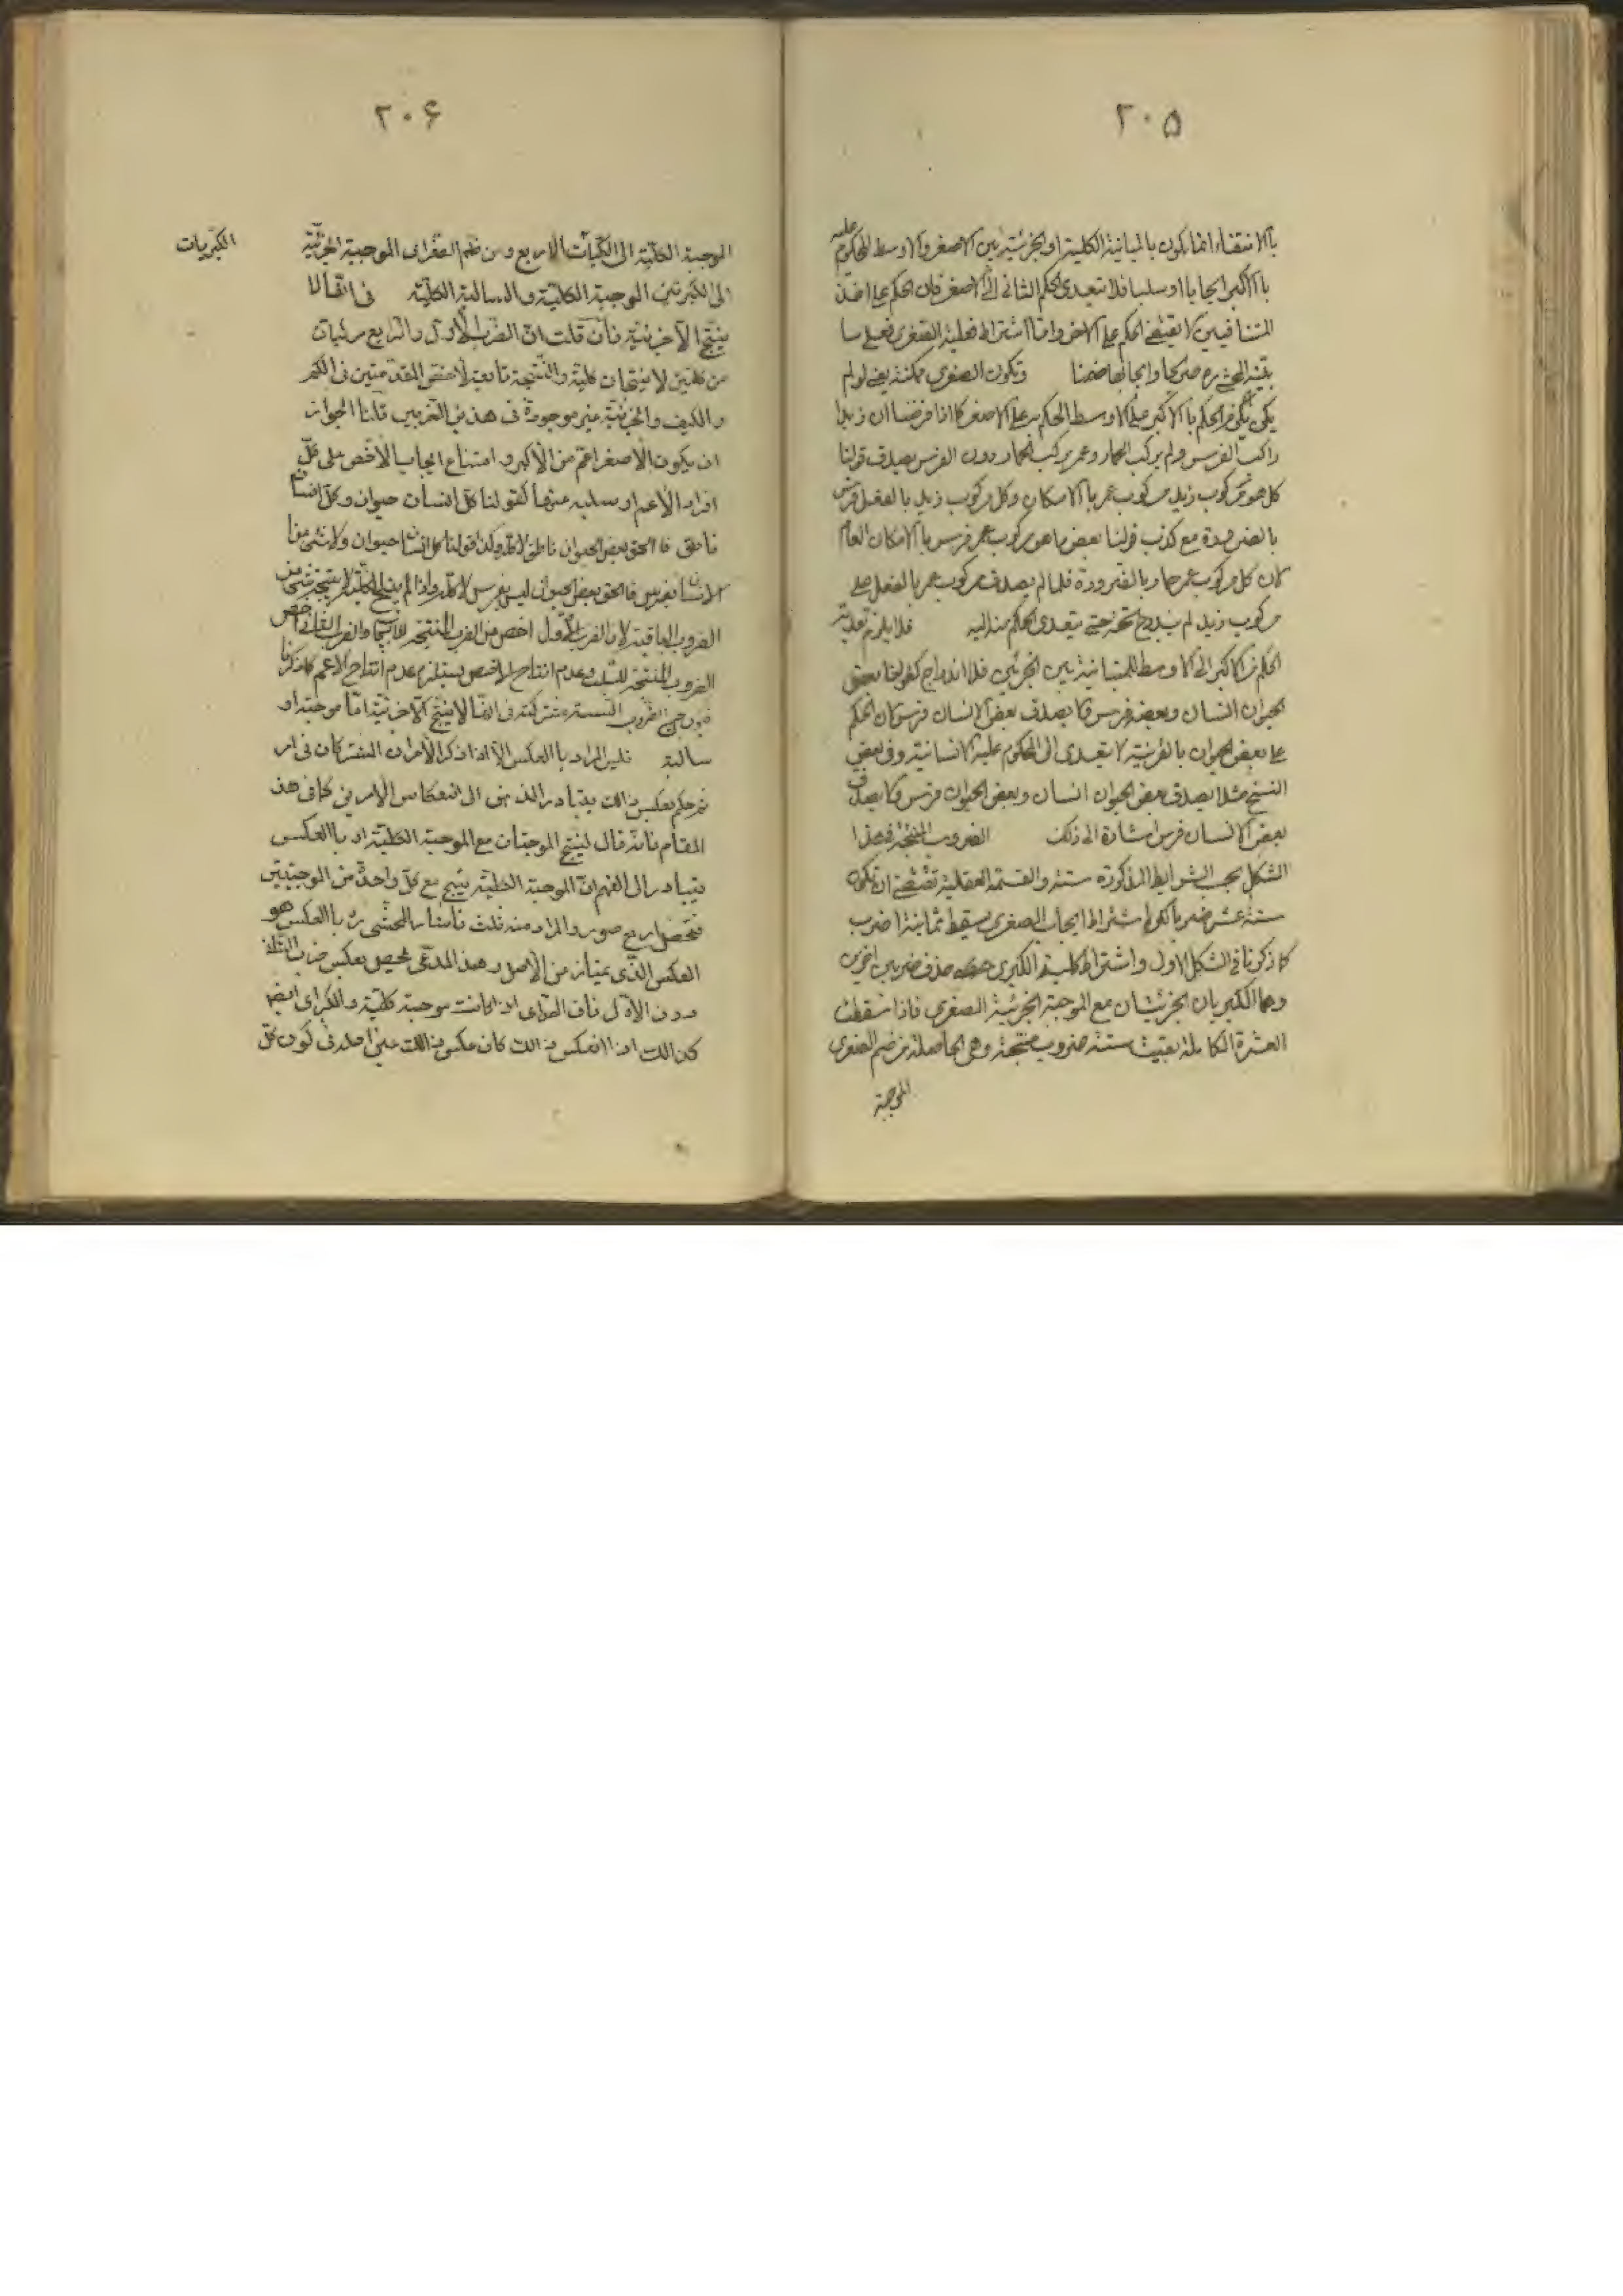 ٢٠٥
بالانتفاء انما يكون بالمباينة الكلية او الجزئية بين الاصغر والاوسط المحكوم عليه
بالاكبر ايجابا او سلبا فلا تتعدى الحكم الثاني الى الاصغر فان الحكم على احد
المتنافيين لا يقتضي الحكم على الاخر واما اشتراط فعلية الصغرى فعلى ما
بينه المحشي ره صريحا وايجابها ضمنا وتكون الصغرى ممكنة يعني لو لم
يكن الحكم بالاكبر على الاوسط الحكم به على الاصغر كما اذا فرضنا ان زيدا
راكب الفرس ولم يركب الحمار وعمر يركب الحمار دون الفرس يصدق قولنا
كل هو مركوب زيد مركوب عمر بالامكان وكل مركوب زيد بالفعل فرس
بالضرورة مع كذب قولنا بعض ما هو مركوب عمر فرس بالامكان العام
لان كل مركوب عمر حمار بالضرورة فلما لم يصدق مركوب عمر بالفعل على
مركوب زيد لم يندرج تحته حتى يتعدى الحكم منه اليه فلا يلزم تعدية
الحكم من الاكبر الى الاوسط للمباينة بين الجزئين فلا اندراج كقولنا بعض
الحيوان انسان وبعضه فرس ولا يصدق بعض الانسان فرس لان الحكم
على بعض الحيوان بالفرسية لا يتعدى الى المحكوم عليه الانسانية وفي بعض
النسخ مثلا يصدق بعض الحيوان انسان وبعض الحيوان فرس ولا يصدق
بعض الانسان فرس اشارة الى ذلك الضروب المنتجة في هذا
الشكل بحسب الشرايط المذكورة ستة والقسمة العقلية تقتضي ان تكون
ستة عشر ضربا لكن اشتراط ايجاب الصغرى يسقط ثمانية اضرب
كما ذكرنا في الشكل الاول واشتراط كلية الكبرى حذف ضربين اخرين
وهما الكبريان الجزئيتان مع الموجبة الجزئية الصغرى فاذا سقطت
العشرة الكاملة بقيت ستة ضروب منتجة وهي الحاصلة من ضم الصغرى
الموجبة
٢٠۶
الموجبة الكلية الى الكبريات الاربع ومن ضم الصغرى الموجبة الجزئية
الكبريات
الى الكبرتين الموجبة الكلية والسالبة الكلية في انها لا
ينتج الا جزئية فان قلت ان الضرب الاول والرابع مركبان
من كليتين لا ينتجان كلية والنتيجة تابعة لاخص المقدمتين في الكم
والكيف والجزئية غير موجودة في هذين الضربين قلنا الجواز
ان يكون الاصغر اعم من الاكبر وامتناع ايجاب الاخص على كل
افراد الاعم او سلبه عنها كقولنا كل انسان حيوان وكل انسان
ناطق فالحق بعض الحيوان ناطق لا كله وكذا قولنا كل انسان حيوان ولا شئ من
الانسان بفرس فالحق بعض الحيوان ليس بفرس لا كله واذا لم ينتج الكلية لم ينتجه شئ من
الضروب الباقية لان الضرب الاول اخص من الضرب المنتجة للايجاب والضرب الثاني اخص
الضروب المنتجة للسلب وعدم انتاج الاخص يستلزم عدم انتاج الاعم كما ذكرنا
فيكون جميع الضروب الستة مشتركة في انها لا ينتج الا جزئية اما موجبة او
سالبة فليس المراد بالعكس الا اذا ذكر الامران المشتركان في امر
ثم حكم بعكس ذلك يتبادر الذهن الى انعكاس الامرين كما في هذ
المقام فانه قال لينتج الموجبتان مع الموجبة الكلية او بالعكس
يتبادر الى الفهم ان الموجبة الكلية ينتج مع كل واحدة من الموجبتين
فتحصل اربع صور والمراد منه ثلث فاشار المحشي ره بالعكس هو
العكس الذي يمتاز من الاصل وهذ المدعى يحصل بعكس ضرب الثاني
دون الاول فان الصغرى اذا كانت موجبة كلية والكبرى ايضا
كذلك اذا انعكس ذلك كان عكس ذلك عين اصله في كون كل